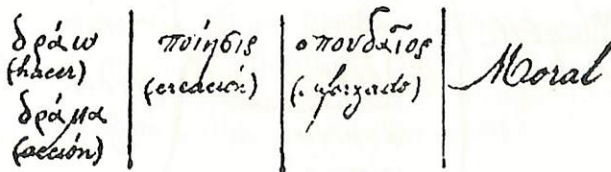 δράω
(hacer)
δράμα
(acción)
ποίησις
(creación)
σπουδαῖος
(esforzado)
Moral